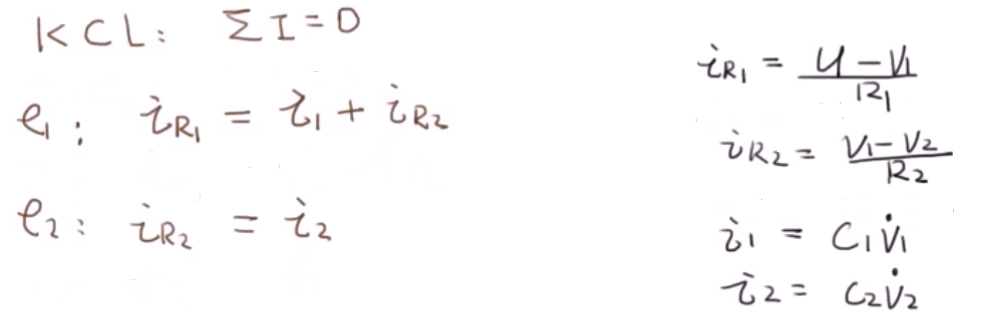 KCL: ΣI=0
e₁: i_R₁ = i₁ + i_R₂
e₂: i_R₂ = i₂
i_R₁ = (u-V₁)/R₁
i_R₂ = (V₁-V₂)/R₂
i₁ = C₁V̇₁
i₂ = C₂V̇₂